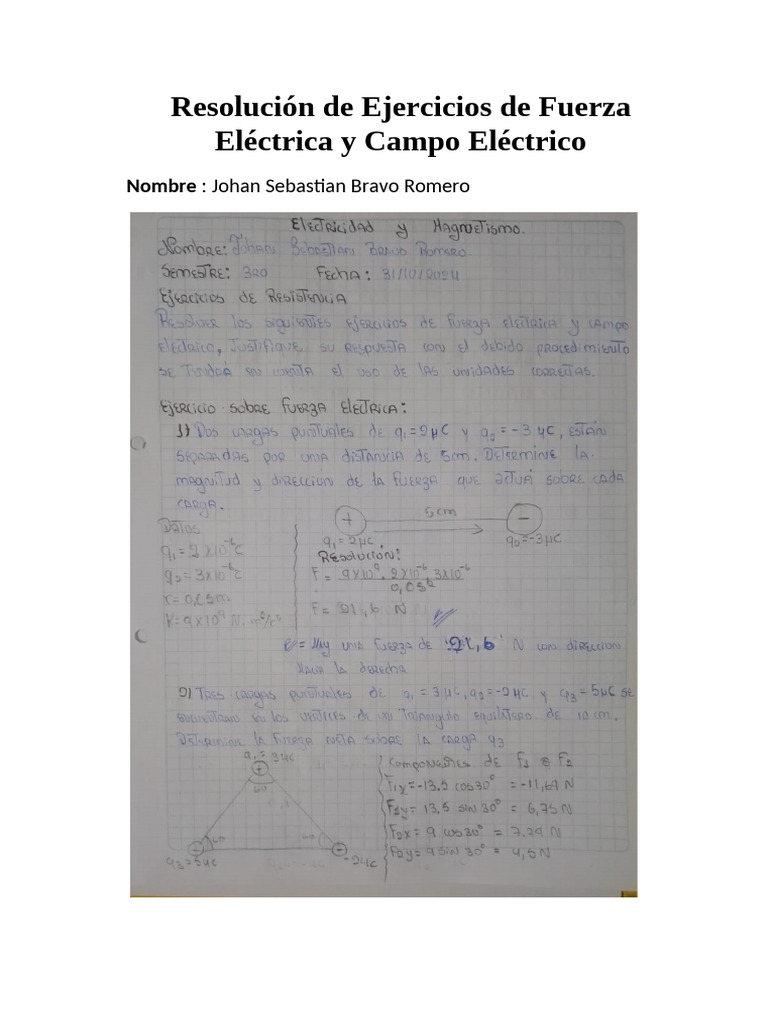 Resolución de Ejercicios de Fuerza
Eléctrica y Campo Eléctrico
Nombre : Johan Sebastian Bravo Romero
Electricidad y Magnetismo.
Nombre: Johan Sebastian Bravo Romero
Semestre: 3ro Fecha: 31/10/2024
Ejercicios de Resistencia
Resolver los siguientes ejercicios de fuerza electrica y campo
electrico, Justifique su respuesta con el debido procedimiento
se tendrá en cuenta el uso de las unidades correctas.
Ejercicio sobre fuerza Electrica:
1) Dos cargas puntuales de q1=2μC y q2=-3μC, están
separadas por una distancia de 5cm. Determine la
magnitud y direccion de la fuerza que actuá sobre cada
carga.
+ 5cm −
q1=2μC q2=-3μC
Datos
q1=2x10⁻⁶C
q2=3x10⁻⁶C
r=0,05m
Resolución:
F = 9x10⁹. 2x10⁻⁶ 3x10⁻⁶
0,05²
F= 21,6 N
R= Hay una fuerza de 21,6 N con direccion
hacia la derecha
2) Tres cargas puntuales de q1=3μC, q2=-2μC y q3=5μC se
encuentran en los vertices de un triangulo equilatero de 10 cm.
Determine la fuerza neta sobre la carga q3
q1=3μC
+
60
60
q3=5μC
-2μC
Componentes de F1 F2
F1x=-13.5 cos30° = -11,69 N
F1y= 13.5 sin 30° = 6,75 N
F2x = 9 cos30° = 7.79 N
F2y= 9 sin 30° = 4,5 N